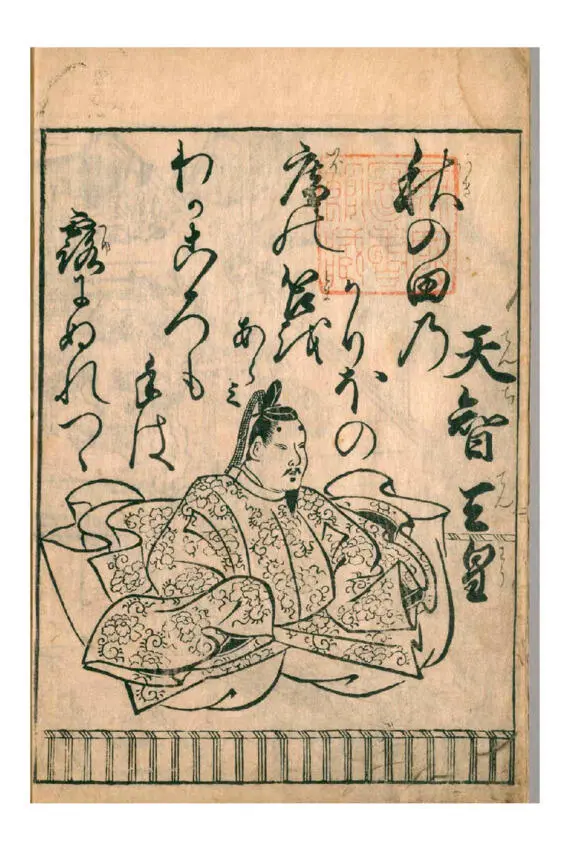 天智天皇
秋の田の
かりほの
庵の苫を
あらミ
わかころも
手は
露にぬれつゝ